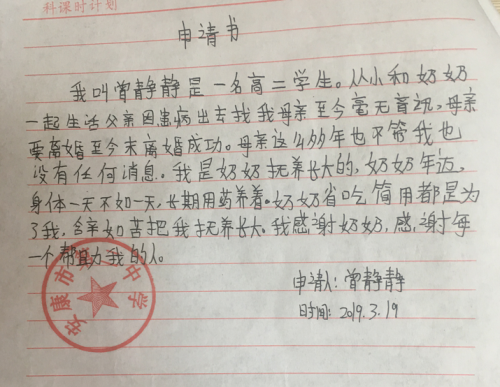 科课时计划
申请书
我叫曾静静是一名高二学生。从小和奶奶
一起生活父亲因患病出去找我母亲至今毫无音讯,母亲
要离婚至今未离婚成功。母亲这么多年也不管我也
没有任何消息。我是奶奶抚养长大的,奶奶年迈。
身体一天不如一天,长期用药养着。奶奶省吃简用都是为
了我,辛如苦把我抚养长大。我感谢奶奶,感谢每
一个帮助我的人。
申请人:曾静静
时间:2019.3.19
安康市 中学